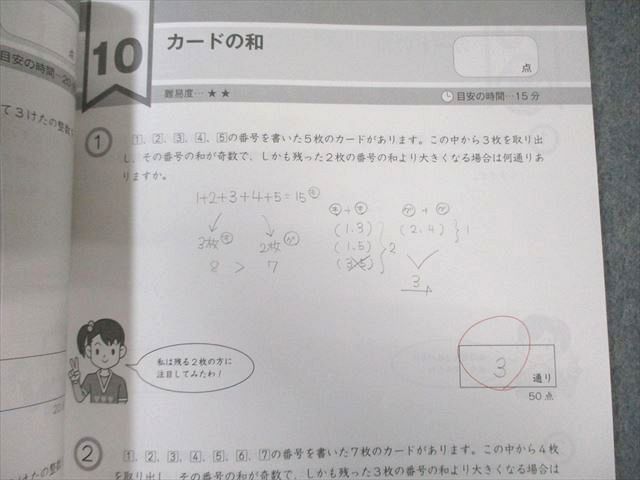 点
目安の時間…20
て3けたの整数
10
カードの和
点
難易度…★★
目安の時間…15分
1 1、2、3、4、5の番号を書いた5枚のカードがあります。この中から3枚を取り出
し、その番号の和が奇数で、しかも残った2枚の番号の和より大きくなる場合は何通りあ
りますか。
1+2+3+4+5=15㋖
3枚㋖ 2枚㋘
8 > 7
㋖+㋖
(1.3)
(1.5)
(3.5)
2
㋘+㋘
(2.4) 1
3
私は残る2枚の方に
注目してみたわ!
3 通り
50点
2 1、2、3、4、5、6、7の番号を書いた7枚のカードがあります。この中から4枚
を取り出し、その番号の和が奇数で、しかも残った3枚の番号の和より大きくなる場合は
けたの整数